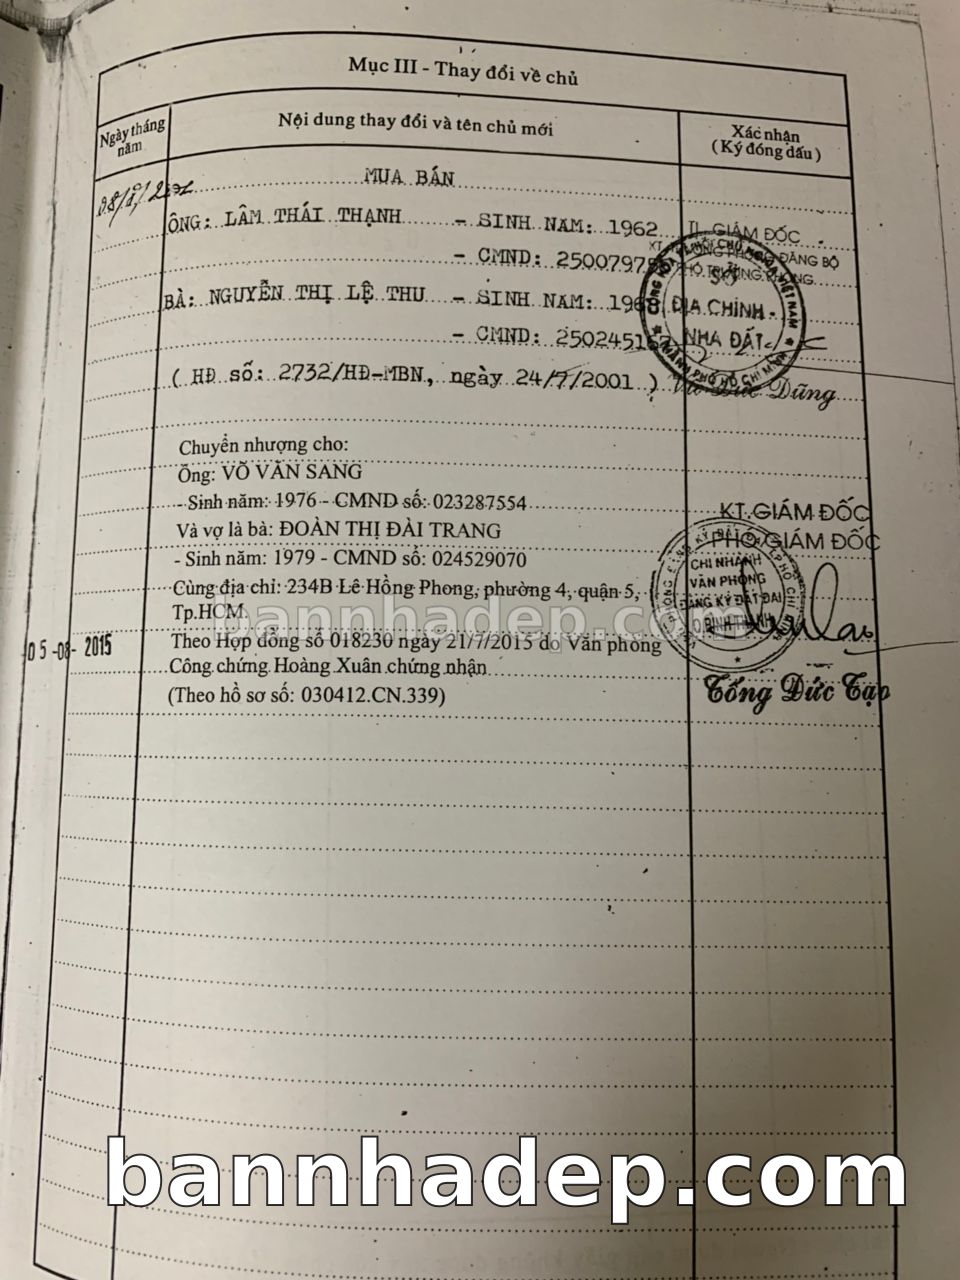 Mục III - Thay đổi về chủ
Ngày tháng năm
Nội dung thay đổi và tên chủ mới
Xác nhận
( Ký đóng dấu )
MUA BÁN
ÔNG: LÂM THÁI THẠNH - SINH NĂM: 1962
TL. GIÁM ĐỐC
- CMND: 25007979
BÀ: NGUYỄN THỊ LỆ THU - SINH NĂM: 1968
ĐỊA CHÍNH -
- CMND: 25024516
NHÀ ĐẤT
( HĐ số: 2732/HĐ-MBN, ngày 24/7/2001 )
Đức Dũng
Chuyển nhượng cho:
Ông: VÕ VĂN SANG
- Sinh năm: 1976 - CMND số: 023287554
KT.GIÁM ĐỐC
Và vợ là bà: ĐOÀN THỊ ĐÀI TRANG
PHÓ GIÁM ĐỐC
- Sinh năm: 1979 - CMND số: 024529070
CHI NHÁNH
VĂN PHÒNG
Cùng địa chỉ: 234B Lê Hồng Phong, phường 4, quận 5,
ĐĂNG KÝ ĐẤT ĐAI
Tp.HCM.
bannhadep.com
05-08-2015
Theo Hợp đồng số 018230 ngày 21/7/2015 do Văn phòng
Công chứng Hoàng Xuân chứng nhận
(Theo hồ sơ số: 030412.CN.339)
Tống Đức Tạo
bannhadep.com